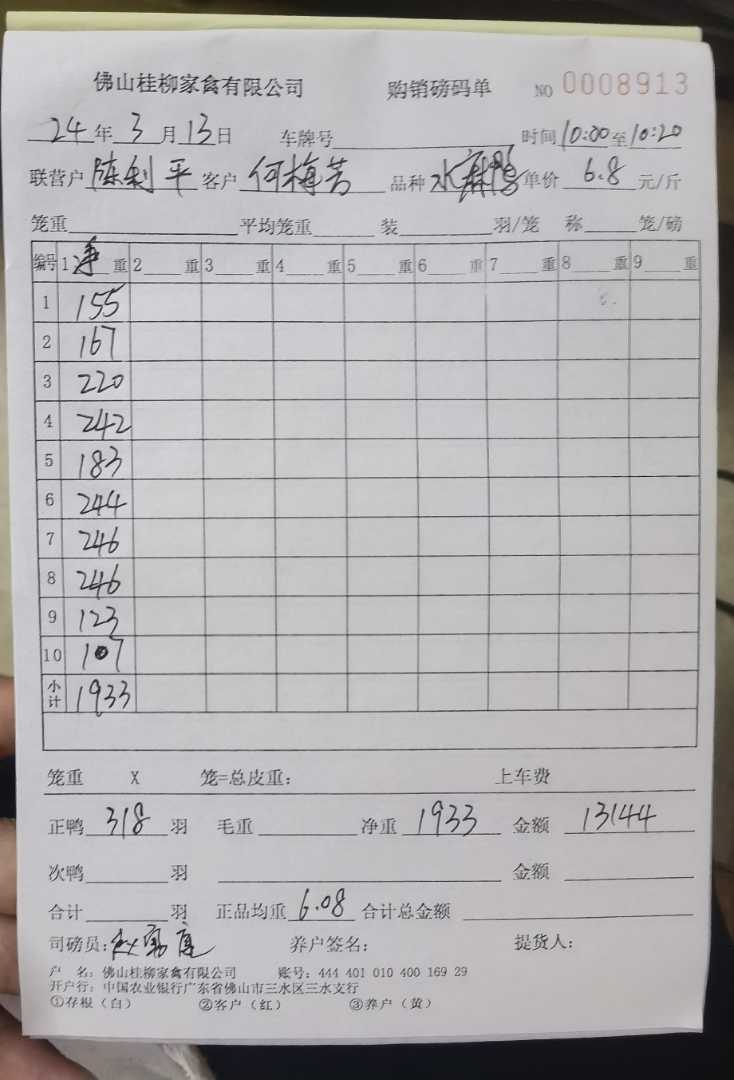 佛山桂柳家禽有限公司 购销磅码单 NO 0008913
24年3月13日 车牌号 时间10:00至10:20
联营户 陈利平 客户 何梅芳 品种 水麻鸭 单价 6.8 元/斤
笼重 平均笼重 装 羽/笼 称 笼/磅
编号 1净重 2 重 3 重 4 重 5 重 6 重 7 重 8 重 9 重
1 155
2 167
3 220
4 242
5 183
6 244
7 246
8 246
9 123
10 107
小计 1933
笼重 X 笼=总皮重: 上车费
正鸭 318 羽 毛重 净重 1933 金额 13144
次鸭 羽 金额
合计 羽 正品均重 6.08 合计总金额
司磅员: 养户签名: 提货人:
户 名: 佛山桂柳家禽有限公司 账号: 444 401 010 400 169 29
开户行: 中国农业银行广东省佛山市三水区三水支行
①存根(白) ②客户(红) ③养户(黄)